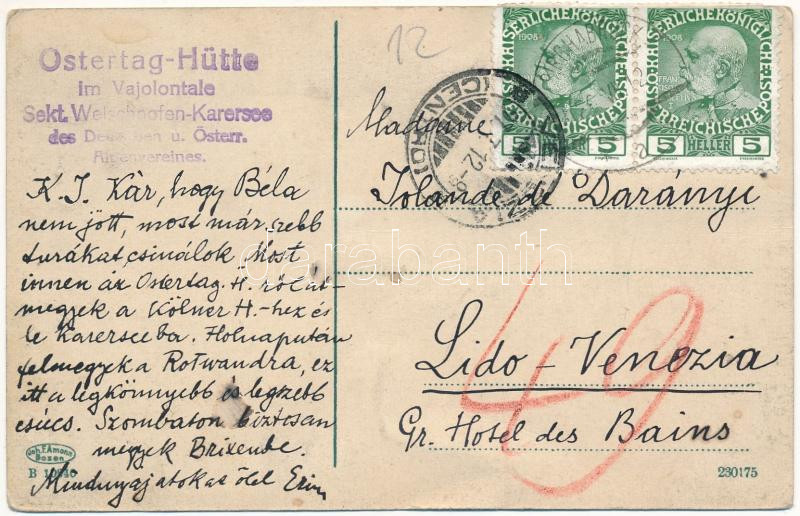 12
Ostertag-Hütte
im Vajolontale
Sekt. Welschnofen-Karersee
des Deutschen u. Österr.
Alpenvereines.
K. J. Kár, hogy Béla
nem jött, most már szebb
turákat csinálok. Most
innen az Ostertag. H. ról át-
megyek a Kölner H.-hez és
le Karerseeba. Holnapután
felmegyek a Rotwandra, ez
itt a legkönnyebb és legszebb
csúcs. Szombaton biztosan
megyek Brixenbe.
Mindnyajatokat ölel Erin
Joh. F. Amonn
Bozen
B
KAISERLICHE KÖNIGLICHE
ÖSTERREICHISCHE POST
1908
5 HELLER 5
KAISERLICHE KÖNIGLICHE
ÖSTERREICHISCHE POST
1908
5 HELLER 5
Madame
Iolande de Darányi
Lido - Venezia
Gr. Hotel des Bains
49
230175
darabanth